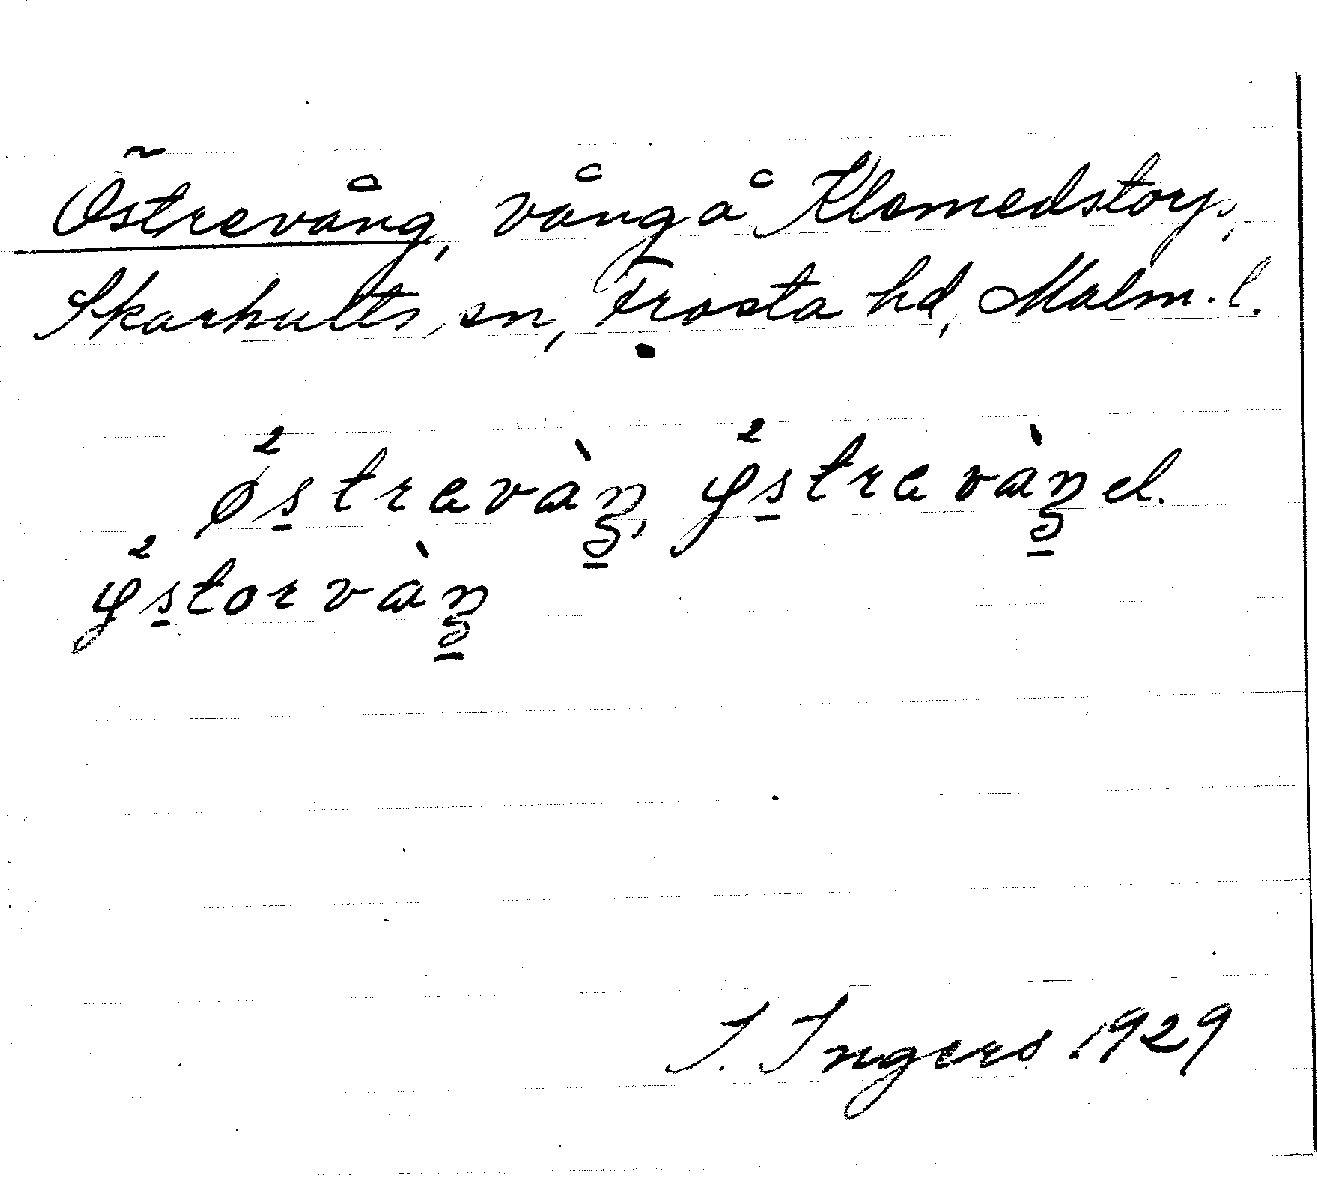 Östrevång, vång å Klemedstorp,
Skarhults sn, Frosta hd, Malm. l.
ø²s̠travàŋ, y²s̠travàŋ el.
y²s̠torvàŋ
I. Ingers 1929